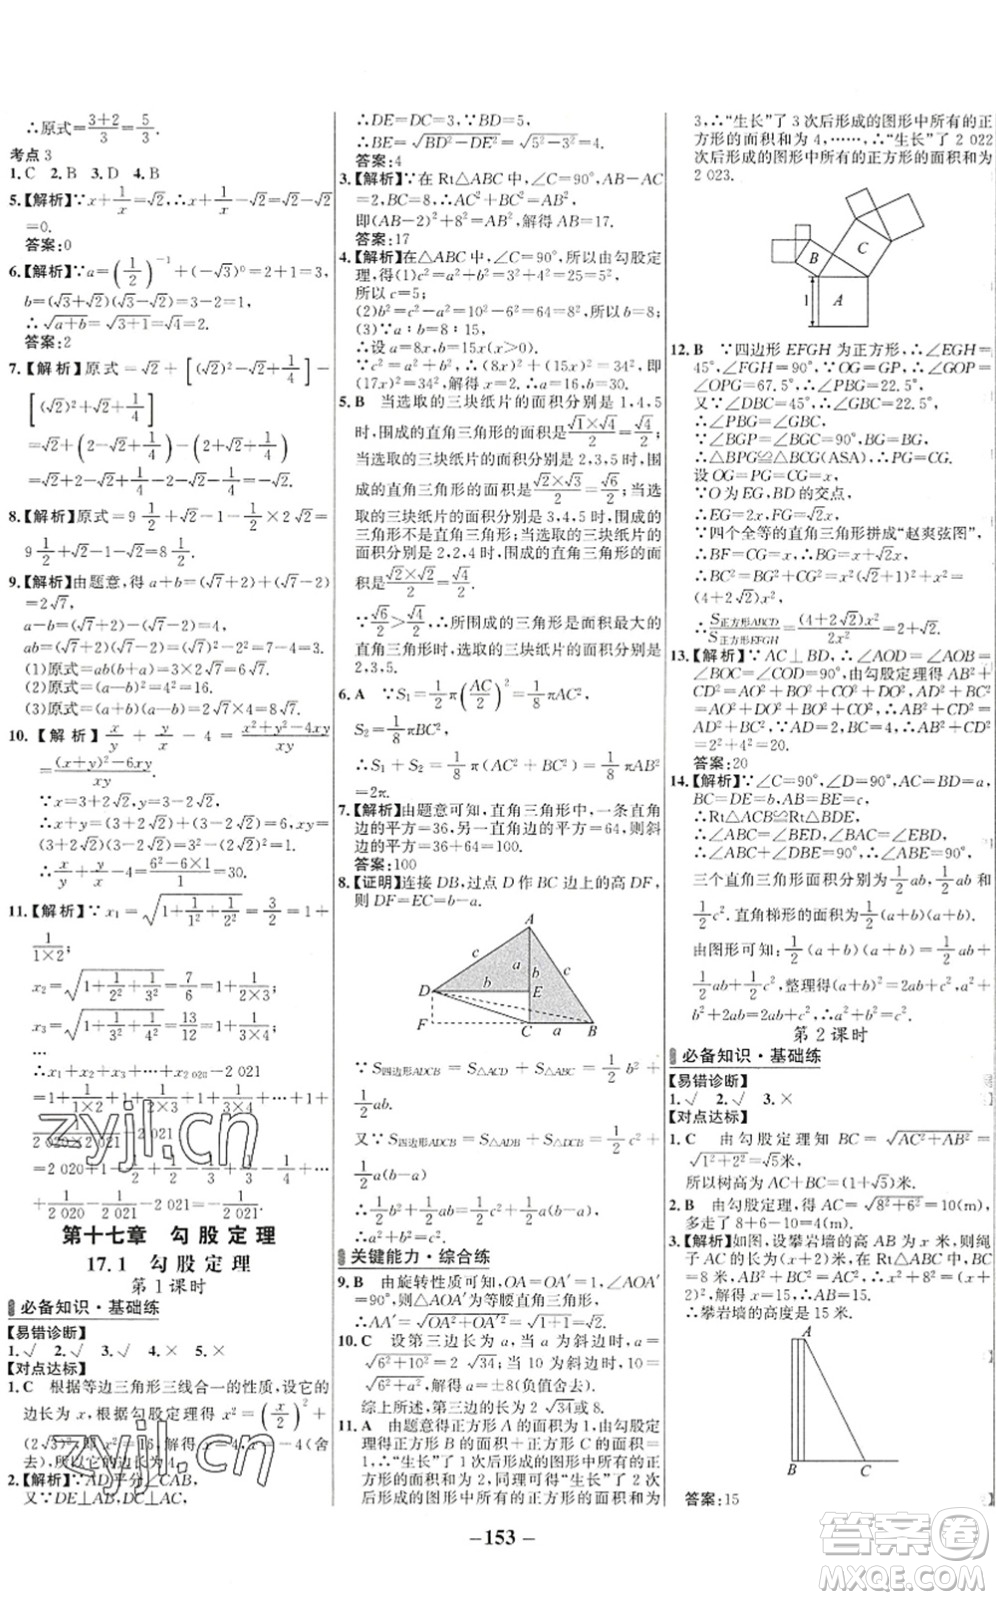 ∴原式=(3+2)/3=5/3.
考点 3
1.C 2.B 3.D 4.B
5.【解析】∵x+1/x=√2,∴x+1/x-√2=√2-√2
=0.
答案:0
6.【解析】∵a=(1/2)⁻¹+(-√3)⁰=2+1=3,
b=(√3+√2)(√3-√2)=3-2=1,
∴√(a+b)=√(3+1)=√4=2.
答案:2
7.【解析】原式=√2+[(√2)²-√2+1/4]-
[(√2)²+√2+1/4]
=√2+(2-√2+1/4)-(2+√2+1/4)
=√2+2-√2+1/4-2-√2-1/4=-√2.
8.【解析】原式=9 1/2+√2-1-1/2×2√2=
9 1/2+√2-1-√2=8 1/2.
9.【解析】由题意,得 a+b=(√7+2)+(√7-2)
=2√7,
a-b=(√7+2)-(√7-2)=4,
ab=(√7+2)(√7-2)=7-4=3,
(1)原式=ab(a+b)=3×2√7=6√7.
(2)原式=(a-b)²=4²=16.
(3)原式=(a+b)(a-b)=2√7×4=8√7.
10.【解析】x/y+y/x-4=(x²+y²-4xy)/xy
=((x+y)²-6xy)/xy
∵x=3+2√2,y=3-2√2,
∴x+y=(3+2√2)+(3-2√2)=6,xy=
(3+2√2)(3-2√2)=9-8=1,
∴x/y+y/x-4=(6²-6×1)/1=30.
11.【解析】∵x₁=√(1+1/1²+1/2²)=3/2=1+
1/(1×2);
x₂=√(1+1/2²+1/3²)=7/6=1+1/(2×3);
x₃=√(1+1/3²+1/4²)=13/12=1+1/(3×4);
…
∴x₁+x₂+x₃+…+x₂ ₀₂₀-2 021
=1+1/(1×2)+1+1/(2×3)+1+1/(3×4)+…+1+
1/(2 020×2 021)-2 021
=2 020+1-1/2+1/2-1/3+1/3-1/4+…+
1/2 020-1/2 021-2 021=-1/2 021.
第十七章 勾股定理
17.1 勾股定理
第 1 课时
必备知识·基础练
【易错诊断】
1.√ 2.√ 3.√ 4.× 5.×
【对点达标】
1.C 根据等边三角形三线合一的性质,设它的
边长为 x,根据勾股定理得 x²=(x/2)²+
(2√3)²,即 x²=16,解得 x=4,x=-4(舍
去),所以它的边长为 4.
2.【解析】∵AD平分∠CAB,
又∵DE⊥AB,DC⊥AC,
∴DE=DC=3,∵BD=5,
∴BE=√(BD²-DE²)=√(5²-3²)=4.
答案:4
3.【解析】∵在 Rt△ABC 中,∠C=90°,AB-AC
=2,BC=8,∴AC²+BC²=AB²,
即(AB-2)²+8²=AB²,解得 AB=17.
答案:17
4.【解析】在△ABC 中,∠C=90°,所以由勾股定
理,得(1)c²=a²+b²=3²+4²=25=5²,
所以 c=5.
(2)b²=c²-a²=10²-6²=64=8²,所以 b=8.
(3)∵a∶b=8∶15,
∴设 a=8x,b=15x(x>0),
∵c²=a²+b²=34²,∴(8x)²+(15x)²=34²,
即(17x)²=34²,解得 x=2,∴a=16,b=30.
5.B 当选取的三块纸片的面积分别是 1,4,5
时,围成的直角三角形的面积是(√1×√4)/2=√4/2;
当选取的三块纸片的面积分别是 2,3,5 时,围
成的直角三角形的面积是(√2×√3)/2=√6/2;当选
取的三块纸片的面积分别是 3,4,5 时,围成的
三角形不是直角三角形;当选取的三块纸片的
面积分别是 2,2,4 时,围成的直角三角形的面
积是(√2×√2)/2=√4/2.
∵√6/2>√4/2,∴所围成的三角形是面积最大的
直角三角形时,选取的三块纸片的面积分别是
2,3,5.
6.A ∵S₁=1/2π(AC/2)²=1/8πAC²,
S₂=1/8πBC²,
∴S₁+S₂=1/8π(AC²+BC²)=1/8πAB²
=2π.
7.【解析】由题意可知,直角三角形中,一条直角
边的平方=36,另一直角边的平方=64,则斜
边的平方=36+64=100.
答案:100
8.【证明】连接 DB,过点 D 作 BC 边上的高 DF,
则 DF=EC=b-a.
A
c
a
c
b
b
D
E
a
F
C
B
∵S四边形ADCB=S△ACD+S△ABC=1/2b²+
1/2ab.
又∵S四边形ADCB=S△ADB+S△DCB=1/2c²+
1/2a(b-a),
∴1/2b²+1/2ab=1/2c²+1/2a(b-a),
∴a²+b²=c².
关键能力·综合练
9.B 由旋转性质可知,OA=OA′=1,∠AOA′
=90°,则△AOA′为等腰直角三角形,
∴AA′=√(OA²+OA′²)=√(1+1)=√2.
10.C 设第三边长为 a,当 a 为斜边时,a=
√(6²+10²)=2√34;当 10 为斜边时,a²+
6²=10²,解得 a=8(负值舍去).
综上所述,第三边的长为 2√34或 8.
11.A 由题意得正方形 A 的面积为 1,由勾股定
理得正方形 B 的面积+正方形 C 的面积=
1,∴“生长”了 1 次后形成的图形中所有的正
方形的面积和为 2,同理可得“生长”了 2 次
后形成的图形中所有的正方形的面积和为
3,∴“生长”了 3 次后形成的图形中所有的正
方形的面积和为 4,……,∴“生长”了 2 022
次后形成的图形中所有的正方形的面积和为
2 023.
C
B
1
A
12.B ∵四边形 EFGH 为正方形,∴∠EGH=
45°,∠FGH=90°,∵OG=GP,∴∠GOP=
∠OPG=67.5°,∴∠PBG=22.5°,
又∵∠DBC=45°,∴∠GBC=22.5°,
∴∠PBG=∠GBC,
∵∠BGP=∠BGC=90°,BG=BG,
∴△BPG≌△BCG(ASA),∴PG=CG.
设 OG=PG=CG=x,
∵O为EG,BD的交点,
∴EG=2x,FG=√2x,
∵四个全等的直角三角形拼成“赵爽弦图”,
∴BF=CG=x,∴BG=x+√2x,
∴BC²=BG²+CG²=x²(√2+1)²+x²=
(4+2√2)x²,
∴S正方形ABCD/S正方形EFGH=(4+2√2)x²/2x²=2+√2.
13.【解析】∵AC⊥BD,∴∠AOD=∠AOB=
∠BOC=∠COD=90°,由勾股定理得 AB²+
CD²=AO²+BO²+CO²+DO²,BC²+
AD²=AO²+DO²+BO²+CO²,∴AB²+
CD²=AD²+BC²,∵AD=2,BC=4,∴AB²+CD²
=2²+4²=20.
答案:20
14.【解析】∵∠C=90°,∠D=90°,AC=BD=a,
BC=DE=b,AB=BE=c,
∴Rt△ABC≌Rt△BDE,
∴∠ABC=∠BED,∠BAC=∠DBE,
∴∠DBE+∠ABC=90°,∴∠ABE=90°,
三个直角三角形面积分别为1/2ab,1/2ab和
1/2c²,直角梯形的面积为1/2(a+b)(a+b).
由图形可知:1/2(a+b)(a+b)=1/2ab+
1/2ab+1/2c²,整理得(a+b)²=2ab+c²,
∴a²+b²+2ab=2ab+c²,∴a²+b²=c².
第 2 课时
必备知识·基础练
【易错诊断】
1.√ 2.√ 3.×
【对点达标】
1.C 由勾股定理知 BC=√(AC²+AB²)=
√(1²+2²)=√5米,
所以树高为 AC+BC=(1+√5)米.
2.B 由勾股定理,得 AC=√(8²+6²)=10(m),
多走了 8+6-10=4(米).
3.【解析】如图,设攀岩墙的高 AB 为 x 米,则绳
子 AC 的长为(x+2)米,在 Rt△ABC 中,BC
=8 米,AB²+BC²=AC²,∴x²+8²=(x+
2)²,解得 x=15,∴AB=15.
∴攀岩墙的高度是 15 米.
A
B
C
答案:15
-153-
zyjl.cn
zyjl.cn
答案圈
MXQE.COM